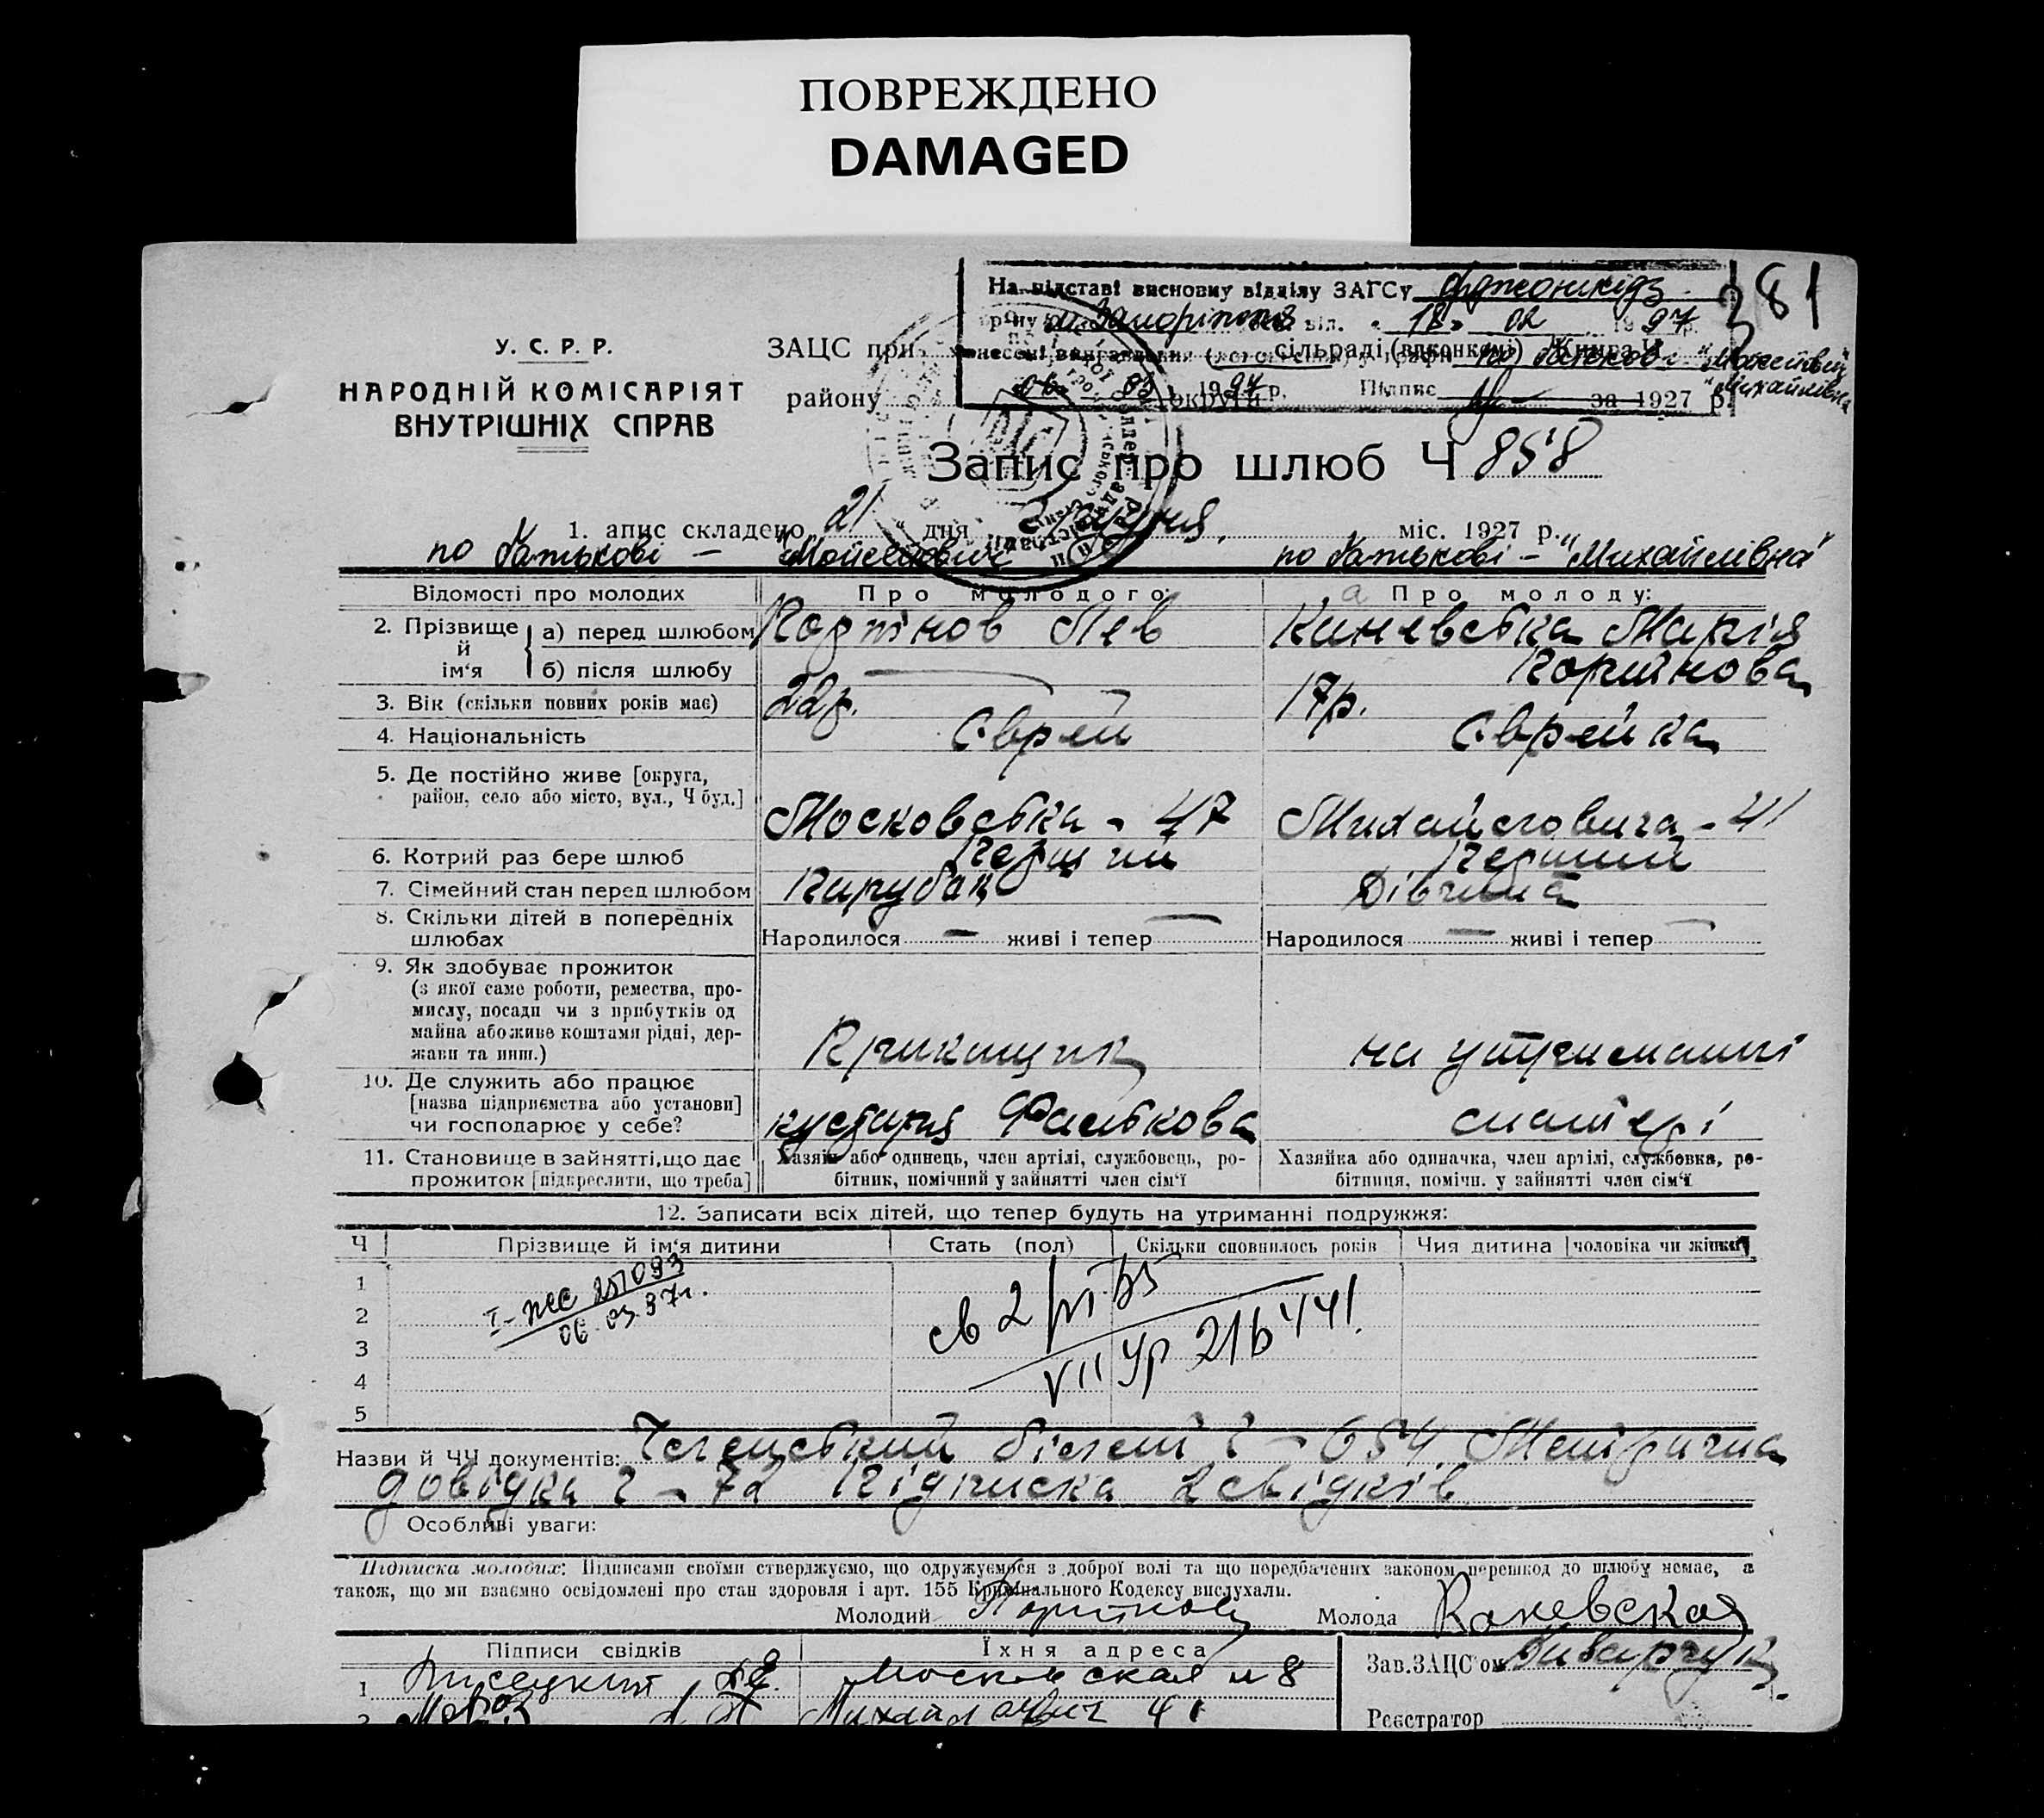 ПОВРЕЖДЕНО
DAMAGED
381
На підставі висновку відділу ЗАГСу Орджонікідз.
р-ну м. Запоріжжя від. "18" 02 1997 р.
Внесені виправлення у графи по батькові "Мойсейович" "Михайлівна"
06 03 1997 р. Підпис
У. С. Р. Р.
НАРОДНІЙ КОМІСАРІЯТ
ВНУТРІШНІХ СПРАВ
ЗАЦС при сільраді (виконкомі) Книга Ч
району округи за 1927 р.
Запис про шлюб Ч 858
1. апис складено 21 дня міс. 1927 р.
по батькові — "Мойсейович" по батькові — "Михайлівна"
Відомості про молодих Про молодого: Про молоду:
2. Прізвище й ім'я а) перед шлюбом Портнов Лев Каневська Марія
б) після шлюбу Портнова
3. Вік (скільки повних років має) 22 р. 17 р.
4. Національність Єврей Єврейка
5. Де постійно живе [округа, район, село або місто, вул., Ч буд.] Московська - 47 Михайловича - 41
6. Котрий раз бере шлюб Перший Перший
7. Сімейний стан перед шлюбом Парубок Дівчина
8. Скільки дітей в попередніх шлюбах Народилося — живі і тепер — Народилося — живі і тепер —
9. Як здобуває прожиток
(з якої саме роботи, ремества, про-
мислу, посади чи з прибутків од
майна або живе коштами рідні, дер-
жави та инш.) Прикащик на утриманні
10. Де служить або працює
[назва підприємства або установи]
чи господарює у себе? кустаря Фалькова матері
11. Становище в зайнятті, що дає
прожиток [підкреслити, що треба]
Хазяїн або одинець, член артілі, службовець, ро-
бітник, помічний у зайнятті член сім'ї
Хазяйка або одиначка, член артілі, службовка, ро-
бітниця, помічн. у зайнятті член сім'ї
12. Записати всіх дітей, що тепер будуть на утриманні подружжя:
Ч Прізвище й ім'я дитини Стать (пол) Скільки сповнилось років Чия дитина [чоловіка чи жінки]
1
2
3
4
5
VII УР 216441
Назви й ЧЧ документів: Членський білет Ч - 654 Метрична
довідка Ч - 72 Підписка 2 свідків
Особливі уваги:
Підписка молодих: Підписами своїми стверджуємо, що одружуємося з доброї волі та що передбачених законом перешкод до шлюбу немає, а
також, що ми взаємно освідомлені про стан здоровля і арт. 155 Кримінального Кодексу вислухали.
Молодий Портнов Молода Каневская
Підписи свідків Їхня адреса Зав. ЗАЦС'ом
1 Московская 8
2 Михайлович 41
Реєстратор